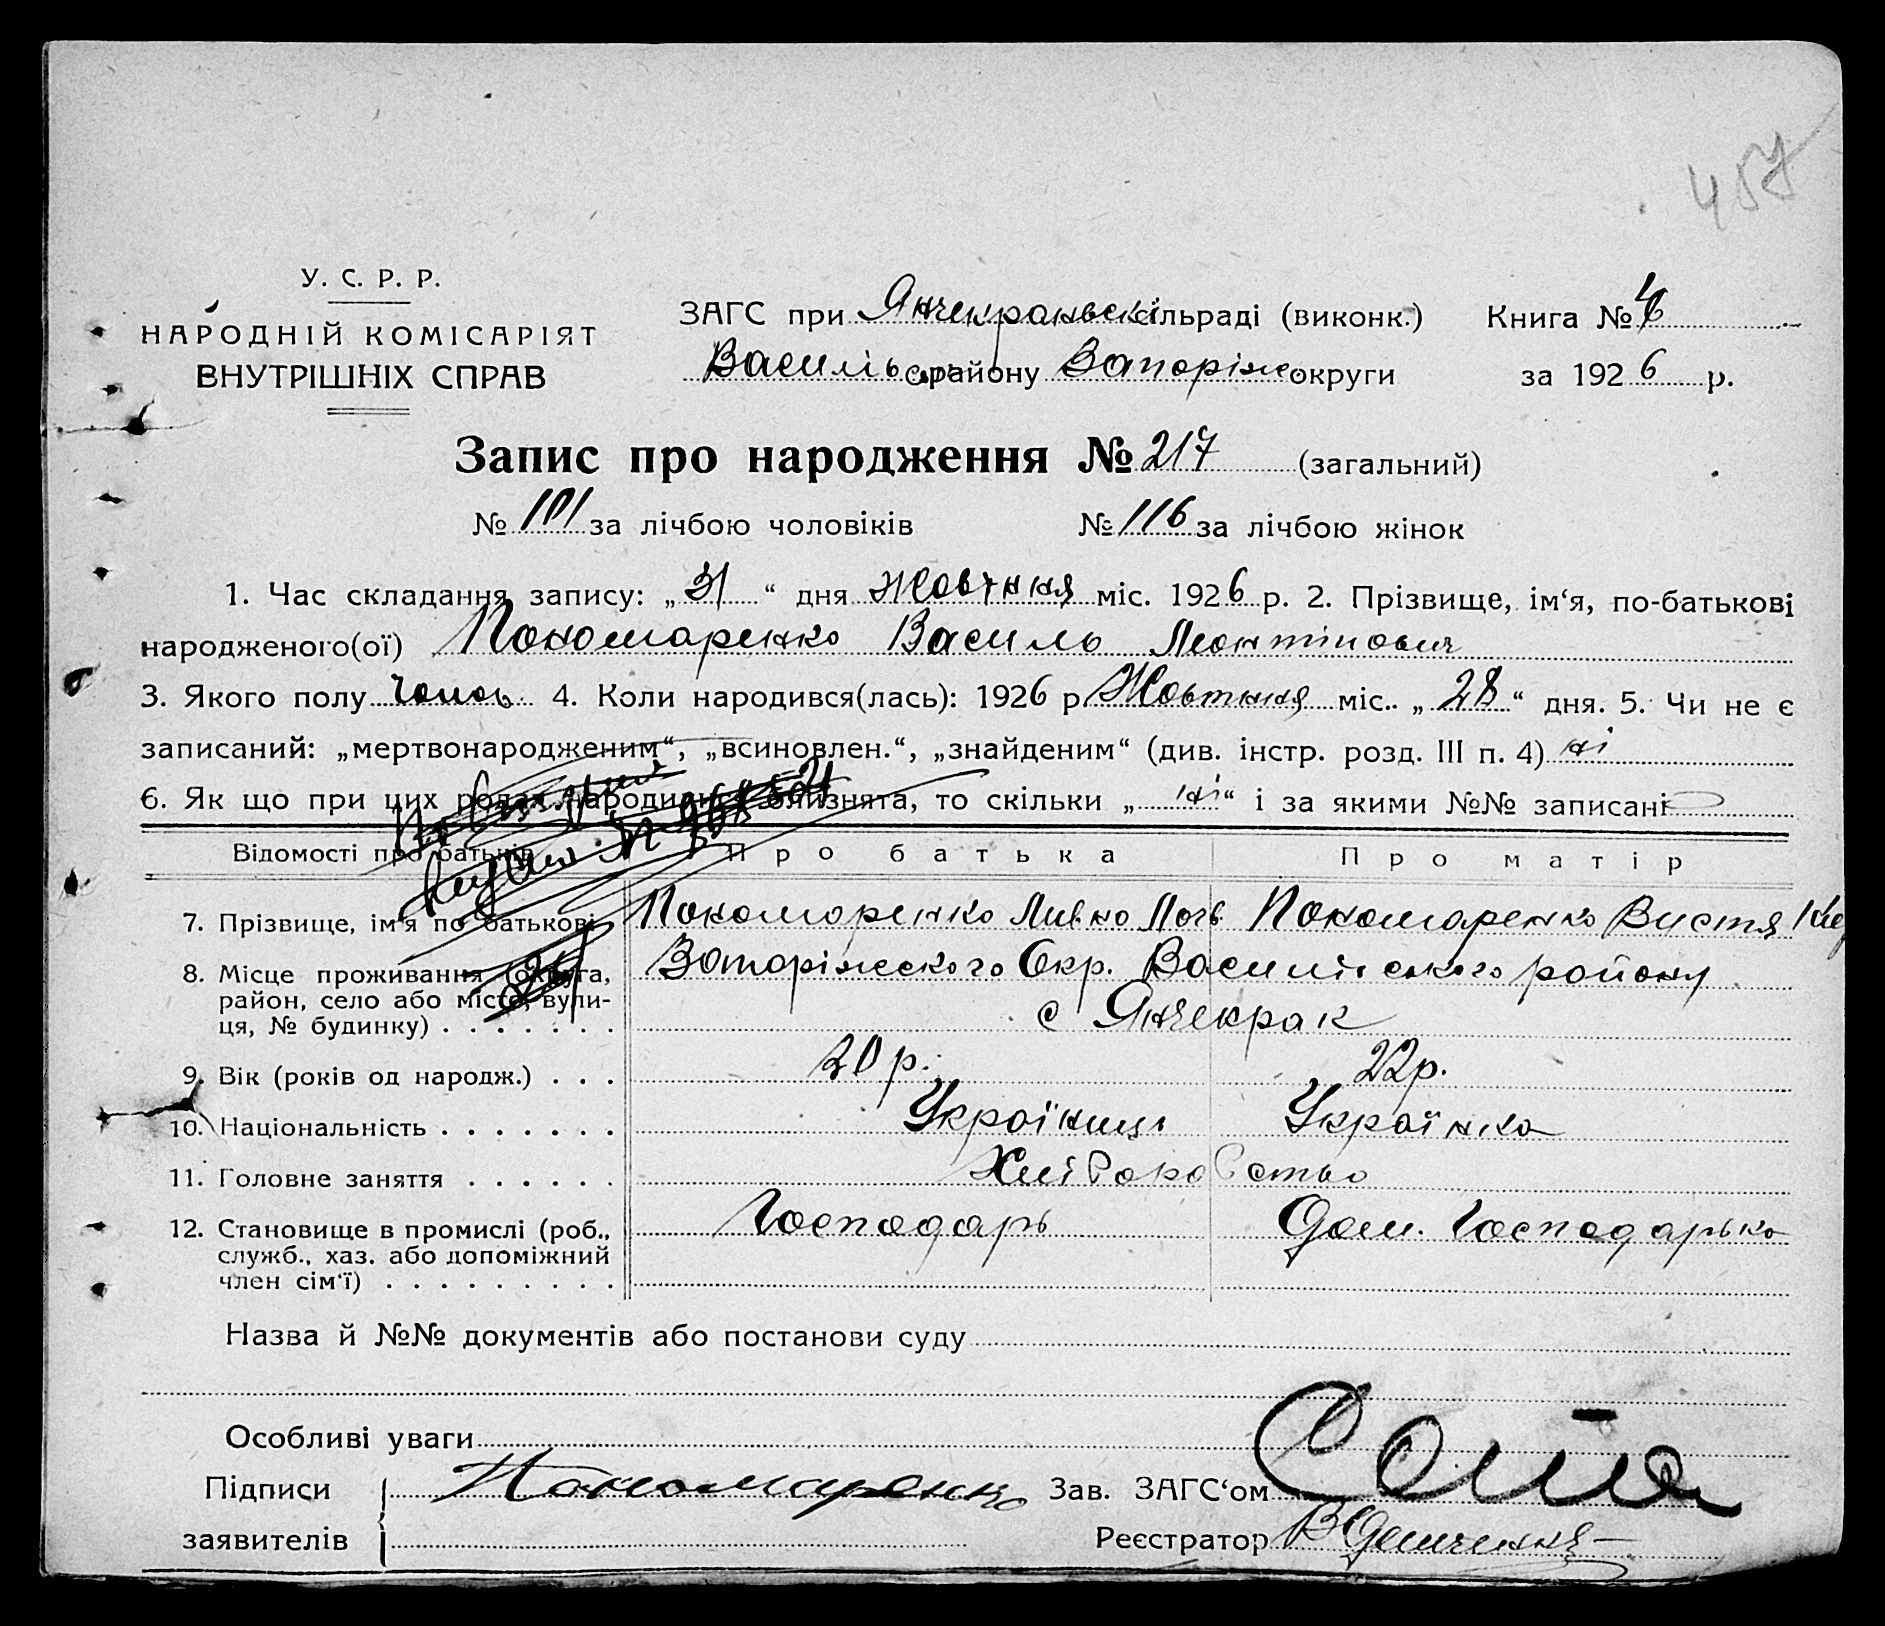 457
У. С. Р. Р.
НАРОДНІЙ КОМІСАРІЯТ
ВНУТРІШНІХ СПРАВ
ЗАГС при Янчекраньскі сільраді (виконк.) Книга №
Василь району Запоріж округи за 1926 р.
Запис про народження № 217 (загальний)
№ 101 за лічбою чоловіків № 116 за лічбою жінок
1. Час складання запису: „31“ дня Жовтня міс. 1926 р. 2. Прізвище, ім‘я, по-батькові
народженого(ої) Пономаренко Василь Леонтіпович
3. Якого полу 4. Коли народився(лась): 1926 р Жовтня міс.. „28“ дня. 5. Чи не є
записаний: „мертвонародженим“, „всиновлен.“, „знайденим“ (див. інстр. розд. III п. 4) ні
6. Як що при цих родах народилися близнята, то скільки „ні“ і за якими №№ записані
Відомості про батьків Про батька Про матір
7. Прізвище, ім'я по батькові Пономаренко Пономаренко
8. Місце проживання (округа, Запоріжского Окр. Василівського району
район, село або місто, вули-
ця, № будинку) . . . . . . . с Янчекрак
9. Вік (років од народж.) . . . 20 р. 22 р.
10. Національність . . . . . . . Українець Українка
11. Головне заняття . . . . . . Хліборобство
12. Становище в промислі (роб., Господарь Дом. Господарька
служб., хаз. або допоміжний
член сім'ї) . . . . . . . . .
Назва й №№ документів або постанови суду
Особливі уваги
Підписи Пономаренко Зав. ЗАГС‘ом
заявителів Реєстратор